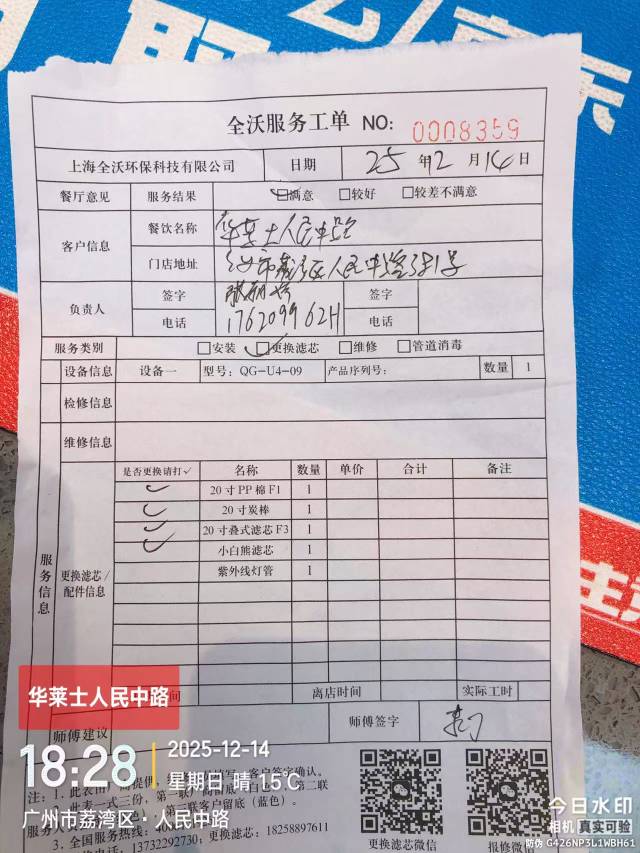 全沃服务工单 NO: 0008359
上海全沃环保科技有限公司 日期 25年12月14日
餐厅意见 服务结果 ☑满意 □较好 □较差不满意
客户信息 餐饮名称 华莱士人民中路
门店地址 人民中路
负责人 签字 签字
电话 电话
服务类别 □安装 ☑更换滤芯 □维修 □管道消毒
设备信息 设备一 型号: QG-U4-09 产品序列号: 数量 1
检修信息
维修信息
服务信息
更换滤芯/配件信息
是否更换请打✓ 名称 数量 单价 合计 备注
✓ 20寸PP棉F1 1
✓ 20寸炭棒 1
✓ 20寸叠式滤芯F3 1
✓ 小白熊滤芯 1
紫外线灯管 1
时间 离店时间 实际工时
师傅建议 师傅签字
注: 1. 此表由
提供,
客户签字确认。
2. 此表一式三份,
第二联
客户留底(蓝色)。
3. 全国服务热线: 400
服务人员: 13732292730; 更换滤芯: 18258897611
更换滤芯微信 报修微信
华莱士人民中路
18:28
2025-12-14
星期日 晴 15℃
广州市荔湾区·人民中路
今日水印
相机 真实可验
防伪 G426NP3L1WBH61